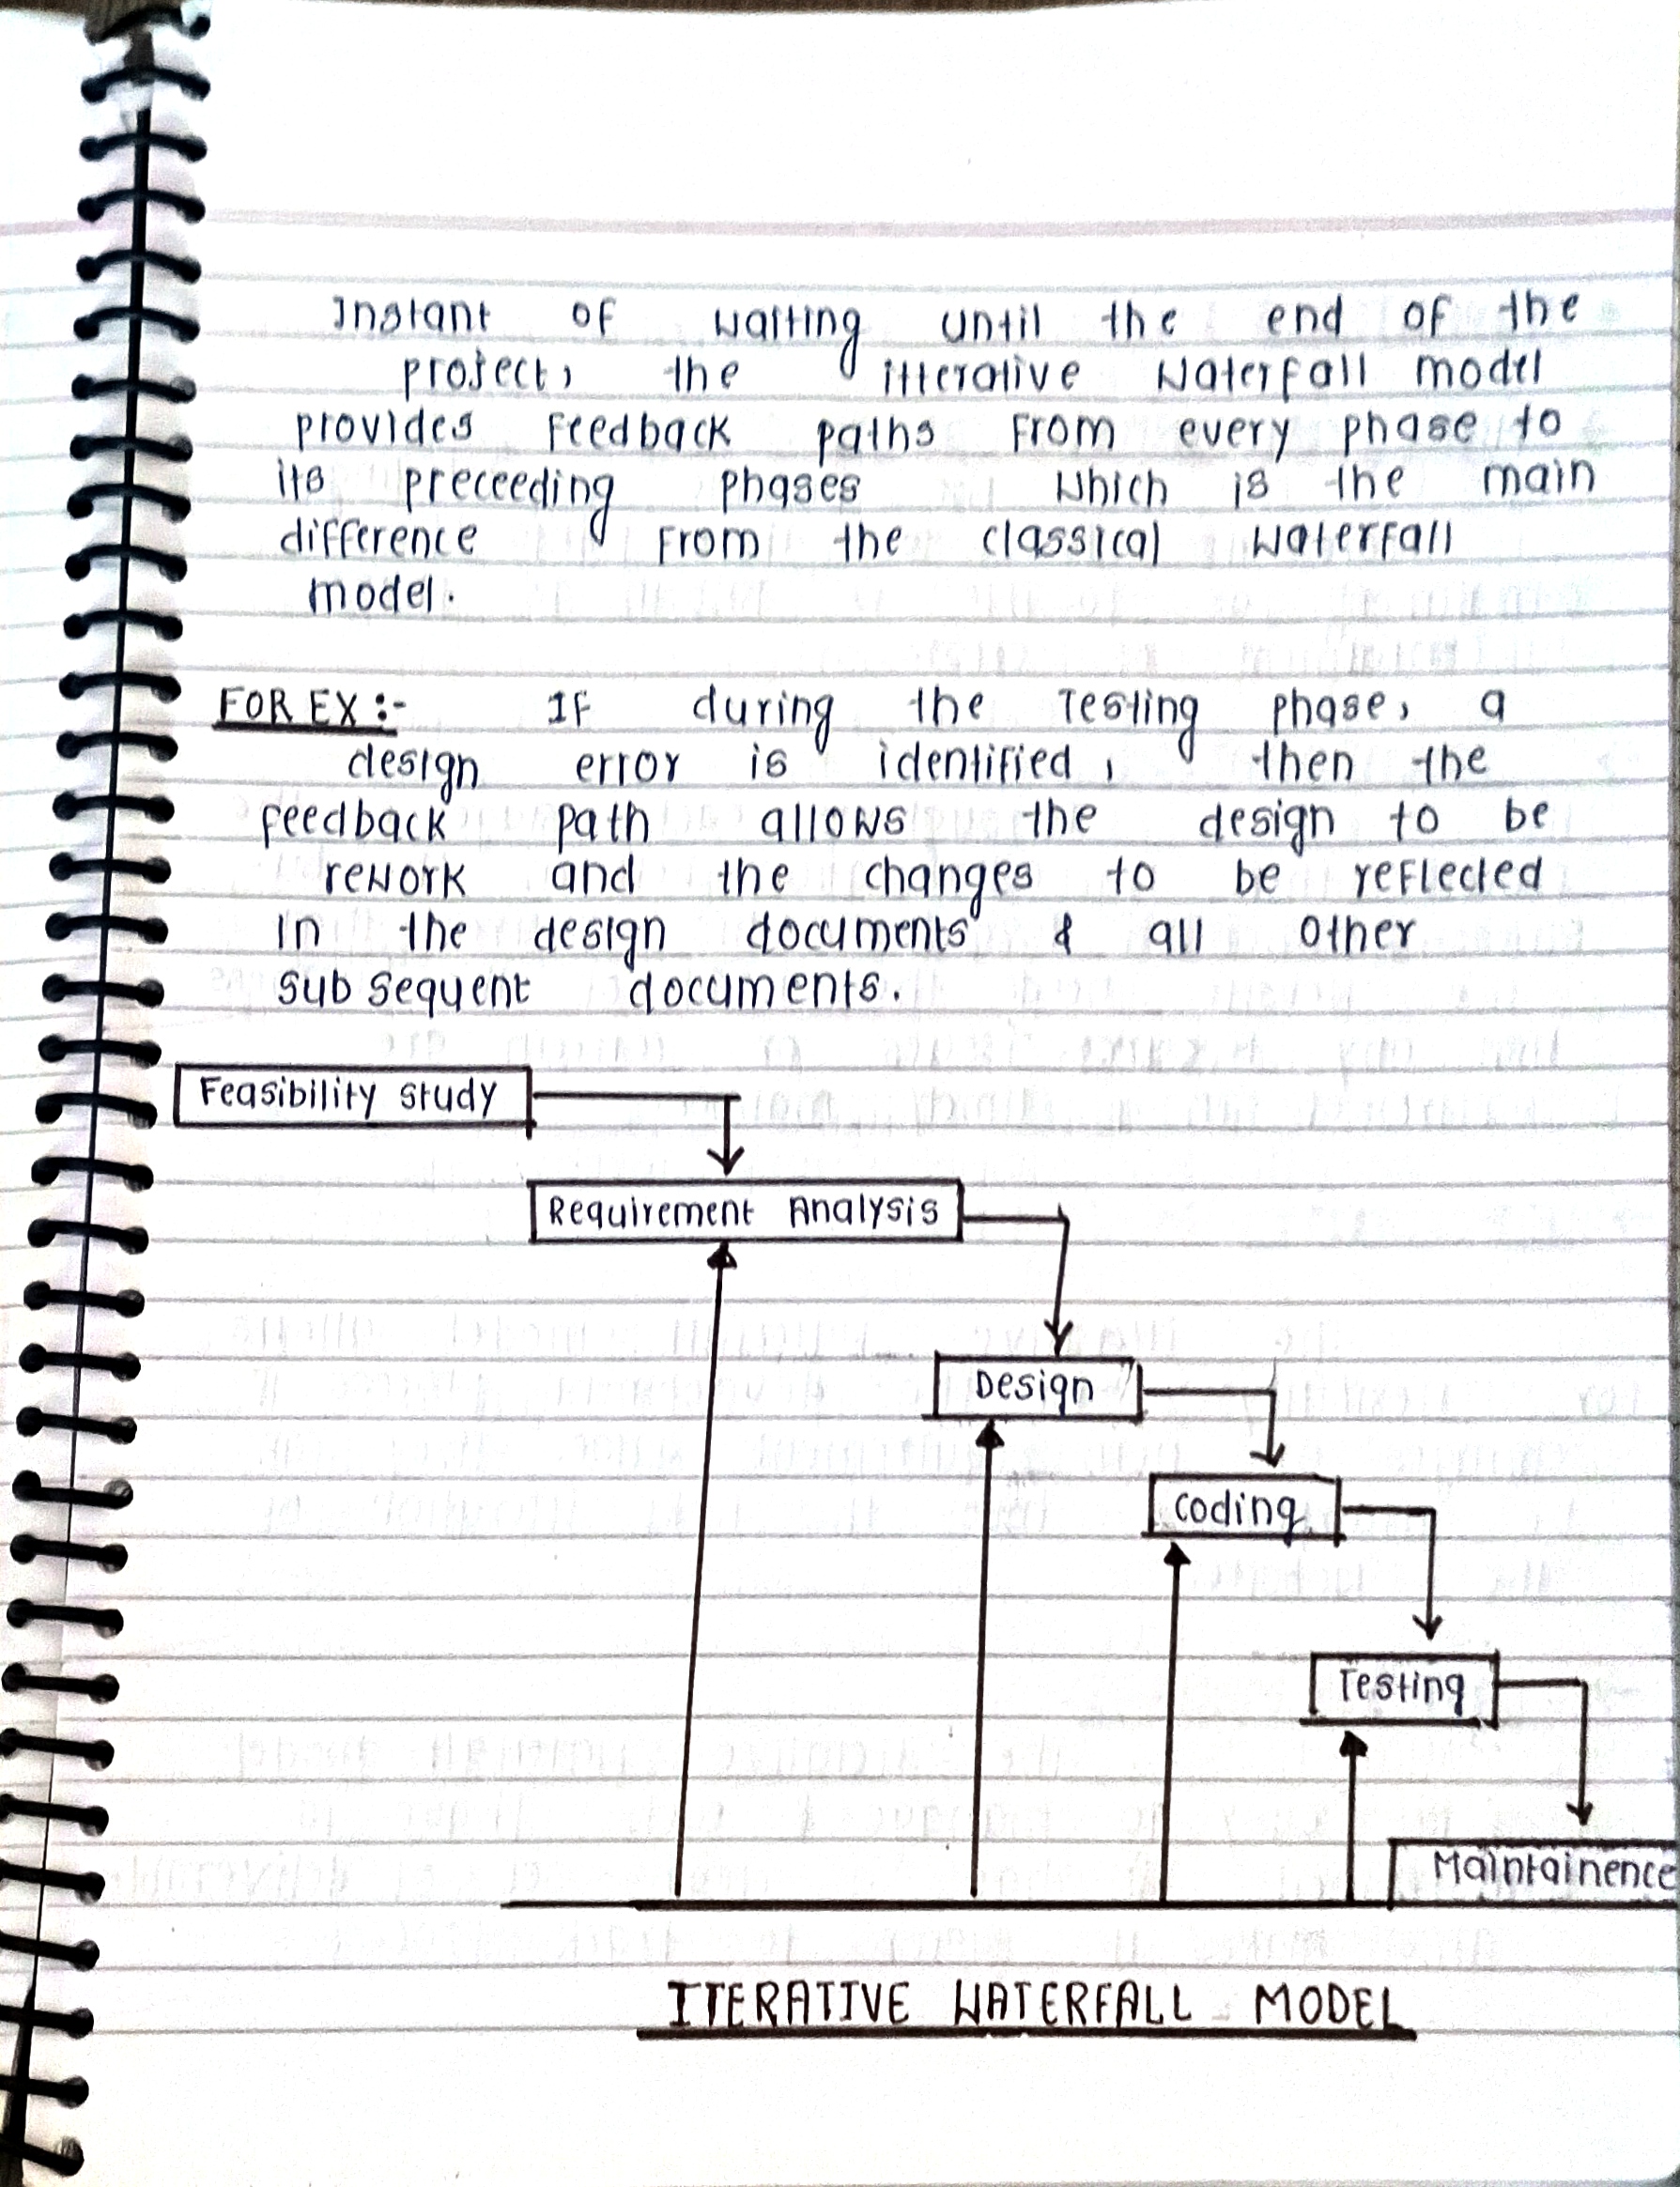 Instant of waiting until the end of the
project, the itterative waterfall model
provides feedback paths from every phase to
its preceeding phases which is the main
difference from the classical waterfall
model.
FOR EX :- If during the Testing phase, a
design error is identified, then the
feedback path allows the design to be
rework and the changes to be reflected
in the design documents & all other
sub sequent documents.
Feasibility study
Requirement Analysis
Design
Coding
Testing
Maintainence
ITERATIVE WATERFALL MODEL